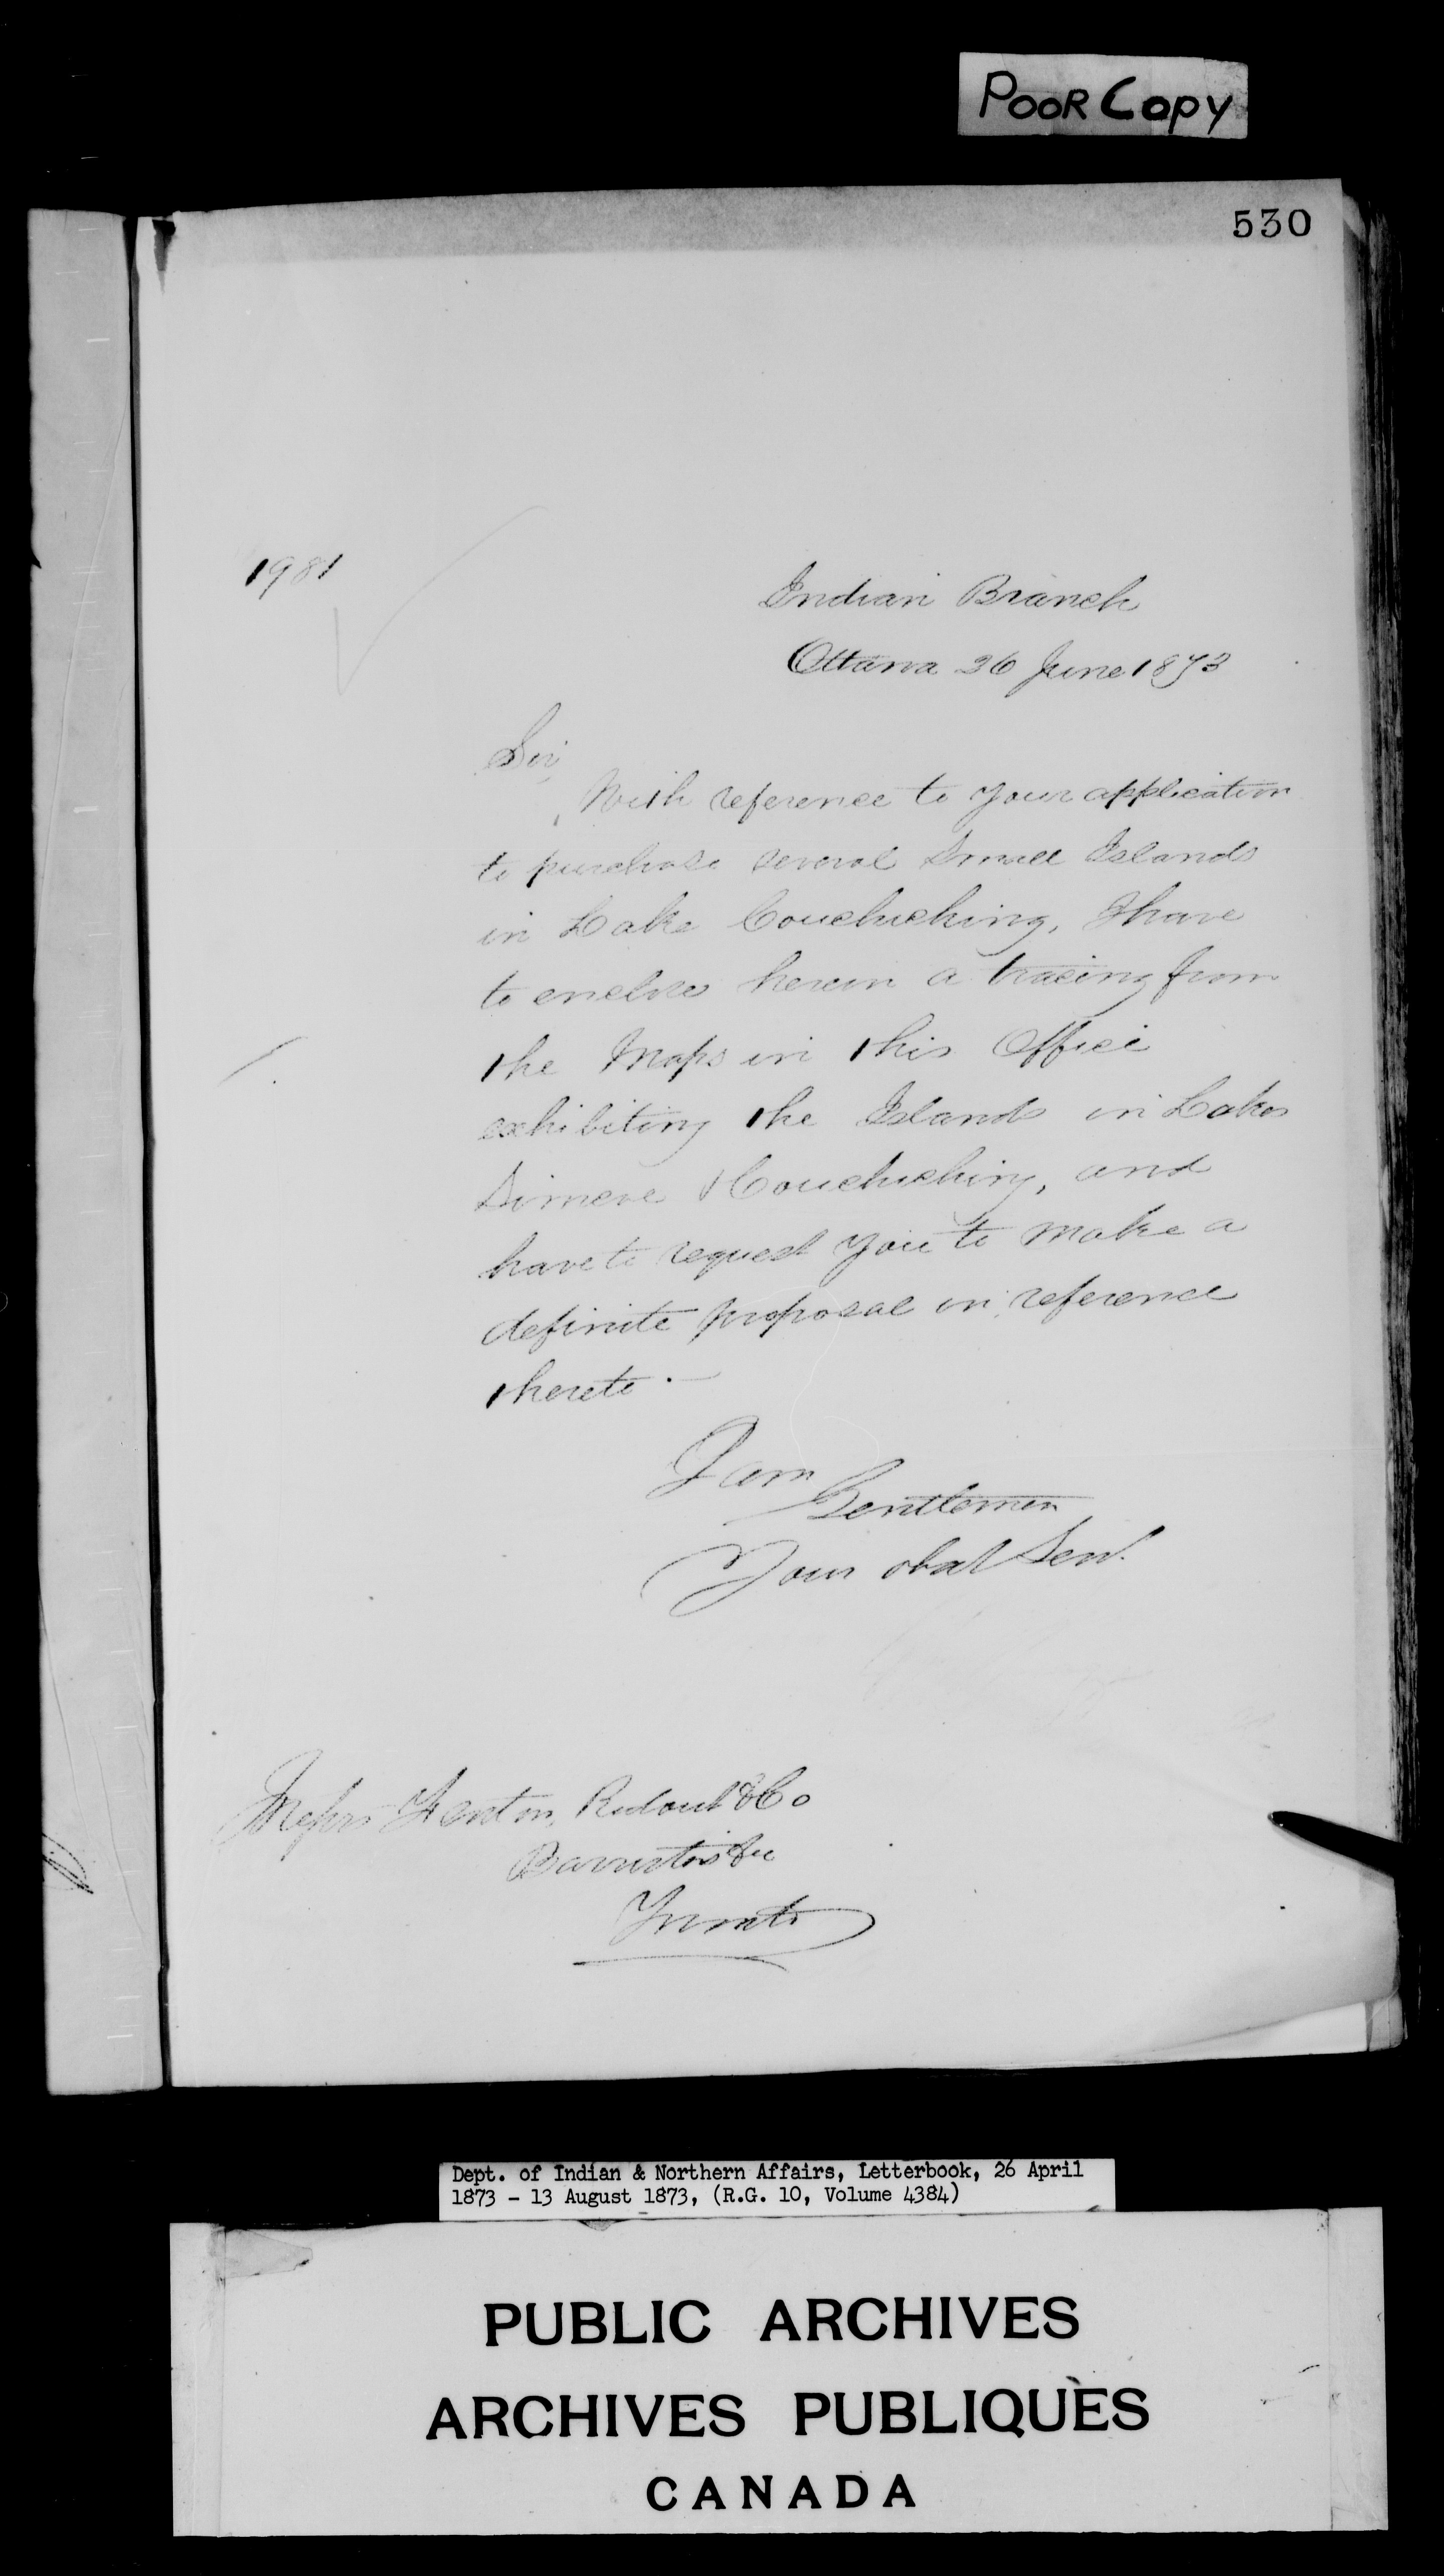 POOR COPY
530
1981
Indian Branch
Ottawa 26 June 1873
Sir,
With reference to your application
to purchase several Small Islands
in Lake Couchiching, I have
to enclose herein a tracing from
the Maps in this Office
exhibiting the Islands in Lakes
Simcoe & Couchiching, and
have to request you to make a
definite proposal in reference
thereto.—
I am
Gentlemen
Your obdt Servt.
Messrs Ridout & Co
Barristers &c
Toronto
Dept. of Indian & Northern Affairs, Letterbook, 26 April
1873 - 13 August 1873, (R.G. 10, Volume 4384)
PUBLIC ARCHIVES
ARCHIVES PUBLIQUES
CANADA